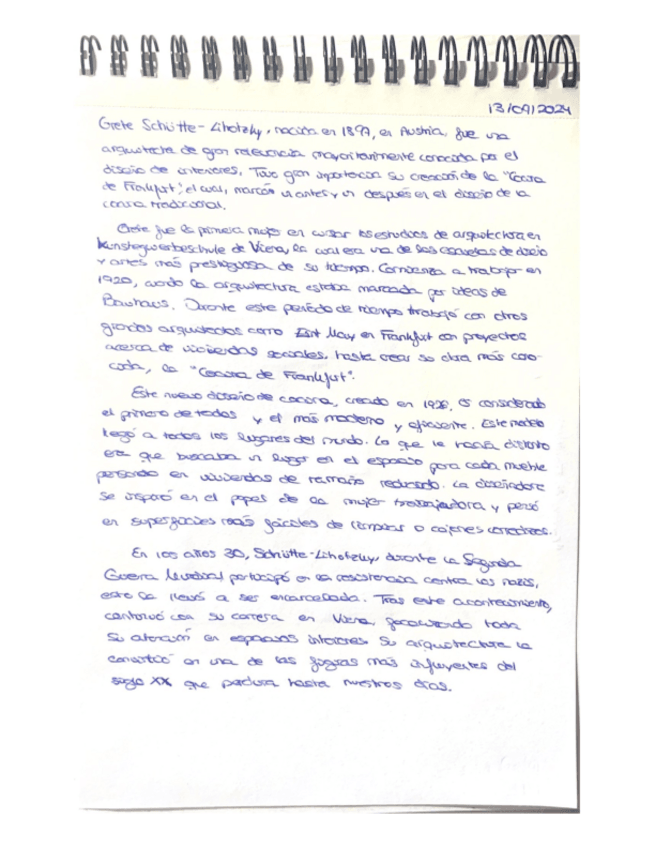 13/09/2024
Grete Schütte-Lihotzky, nacida en 1897, en Austria, fue una
arquitecta de gran relevancia mayoritariamente conocida por el
diseño de interiores. Tuvo gran importancia su creación de la "Cocina
de Frankfurt", el cual, marcó un antes y un después en el diseño de la
cocina tradicional.
Grete fue la primera mujer en cursar los estudios de arquitectura en
Kunstegwerbeschule de Viena, la cual era una de las escuelas de diseño
y artes más prestigiosa de su tiempo. Comienza a trabajar en
1920, cuando la arquitectura estaba marcada por ideas de
Bauhaus. Durante este periodo de tiempo trabajó con otros
grandes arquitectos como Ernt May en Frankfurt con proyectos
acerca de viviendas sociales, hasta crear su obra más cono-
cida, la "Cocina de Frankfurt".
Este nuevo diseño de cocina, creado en 1926, es considerado
el primero de todos y el más moderno y eficiente. Este modelo
llegó a todos los lugares del mundo. Lo que le hacía distinto
era que buscaba un lugar en el espacio para cada mueble
pensando en viviendas de tamaño reducido. La diseñadora
se inspiró en el papel de la mujer trabajadora y pensó
en superficies más fáciles de limpiar o cajones correderos.
En los años 30, Schütte-Lihotzky, durante la Segunda
Guerra Mundial participó en la resistencia contra los nazis,
esto la llevó a ser encarcelada. Tras este acontecimiento,
continuó con su carrera en Viena, focalizando toda
su atención en espacios interiores. Su arquitectura la
convirtió en una de las figuras más influyentes del
siglo XX que perdura hasta nuestros días.